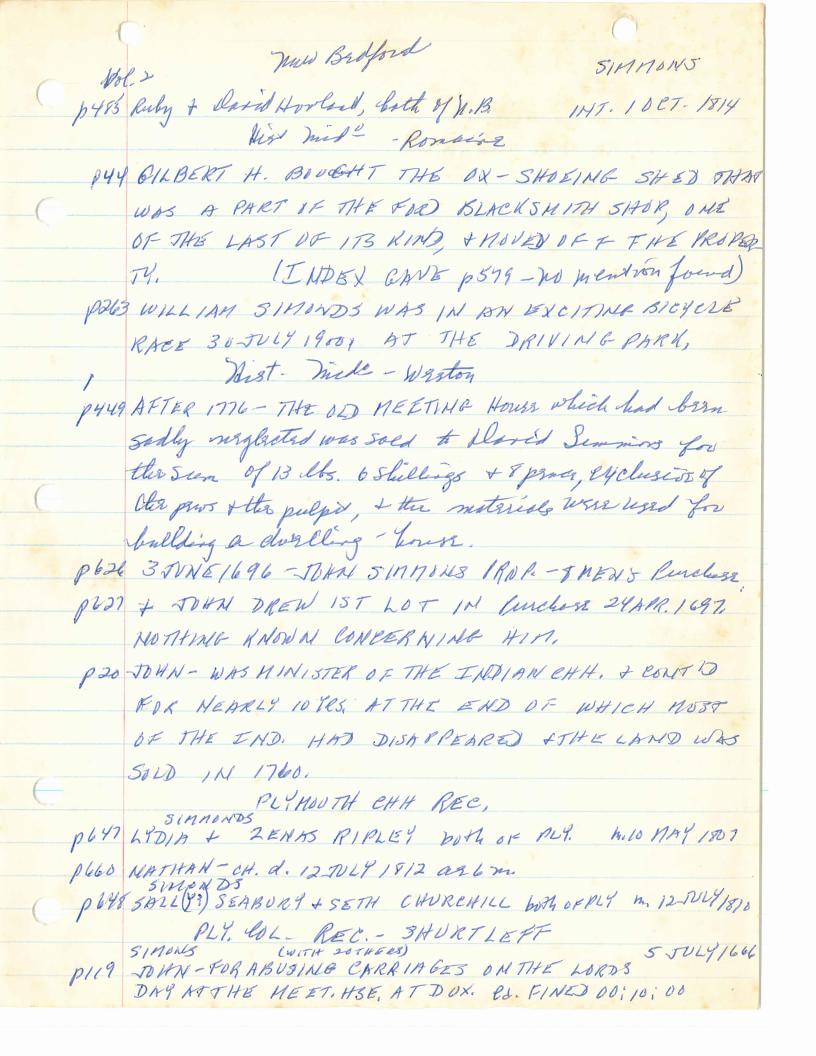 New Bedford
SIMMONS
Vol. 2
p483 Ruby & David Howland, both of N.B. INT. 1 OCT. 1814
Hist Midº - Romaine
p44 GILBERT H. BOUGHT THE OX-SHOEING SHED THAT
WAS A PART OF THE FORD BLACKSMITH SHOP, ONE
OF THE LAST OF ITS KIND, & MOVED OFF THE PROPER
TY. (INDEX GAVE p579 - no mention found)
p263 WILLIAM SIMONDS WAS IN AN EXCITING BICYCLE
RACE 30 JULY 1900, AT THE DRIVING PARK,
Hist - Midº - Weston
p449 AFTER 1776 - THE OLD MEETING House which had been
sadly neglected was sold to David Simmons for
the sum of 13 lbs. 6 shillings & 8 pence, exclusive of
the pews & the pulpit, & the materials were used for
building a dwelling-house.
p626 3 JUNE 1696 - JOHN SIMMONS PROP. - 8 MEN'S Purchase,
p627 & JOHN DREW 1ST LOT IN Purchase 24 APR. 1697.
NOTHING KNOWN CONCERNING HIM.
p20 - JOHN - WAS MINISTER OF THE INDIAN CHH. & CONT'D
FOR NEARLY 10 YRS. AT THE END OF WHICH MOST
OF THE IND. HAD DISAPPEARED & THE LAND WAS
SOLD IN 1760.
PLYMOUTH CHH REC.
SIMMONDS
p647 LYDIA & ZENAS RIPLEY both of PLY. m. 10 MAY 1807
p660 NATHAN - CH. d. 12 JULY 1812 ae 6 m.
SIMONDS
p648 SALL(Y?) SEABURY & SETH CHURCHILL both OF PLY m. 12 JULY 1810
PLY. COL - REC. - SHURTLEFF
SIMONS (WITH 2 OTHERS) 5 JULY 1666
p119 JOHN - FOR ABUSING CARRIAGES ON THE LORDS
DAY AT THE MEET. HSE. AT DUX. FINED 00:10:00